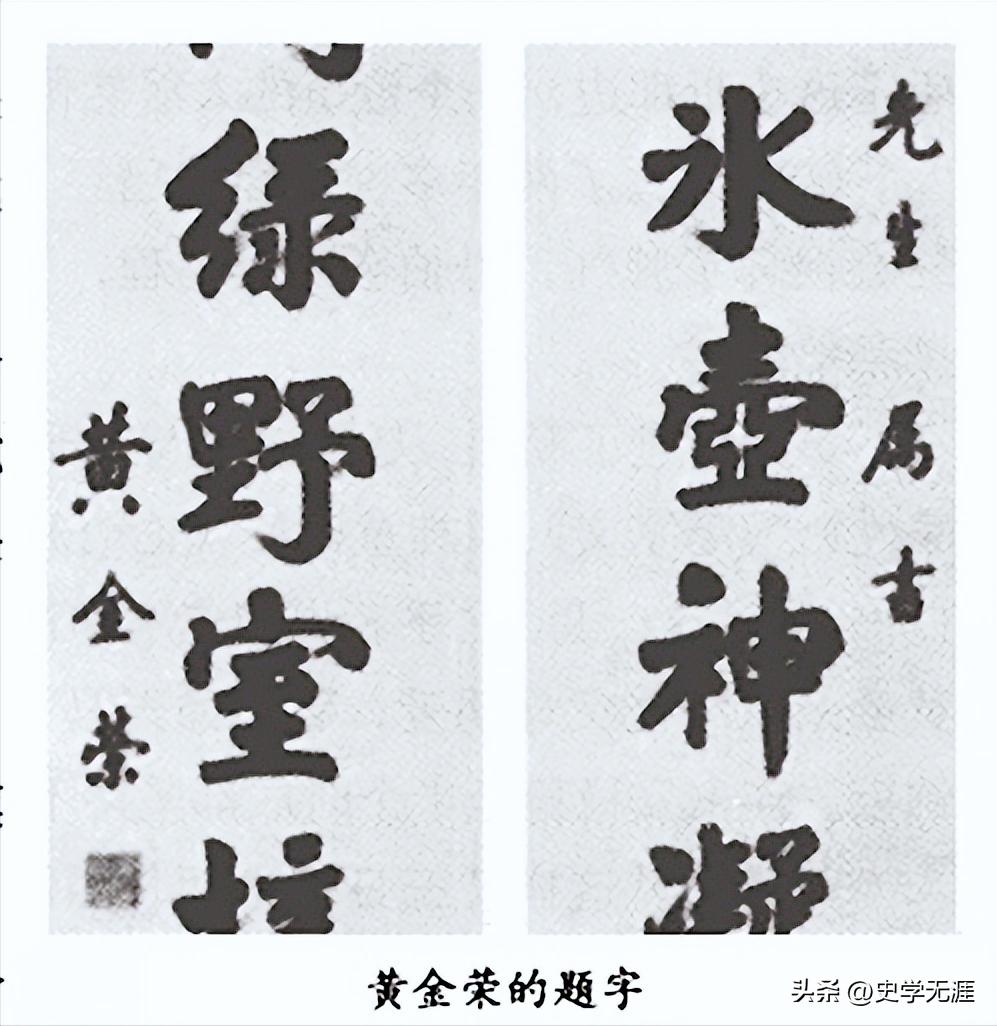 先生 属
氷壺神
绿野室
黄金荣
黄金荣的题字
头条 @史学无涯